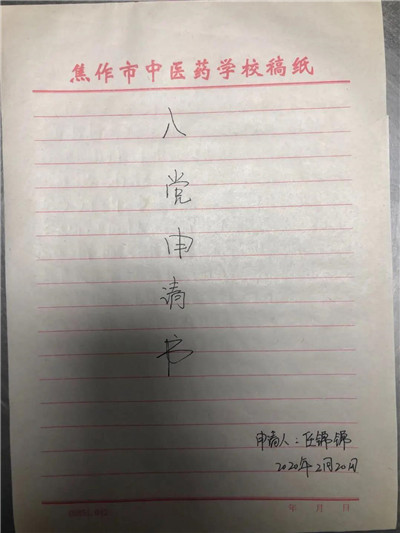 焦作市中医药学校稿纸
入
党
申
请
书
申请人：任锦锦
2020年2月20日
年 月 日